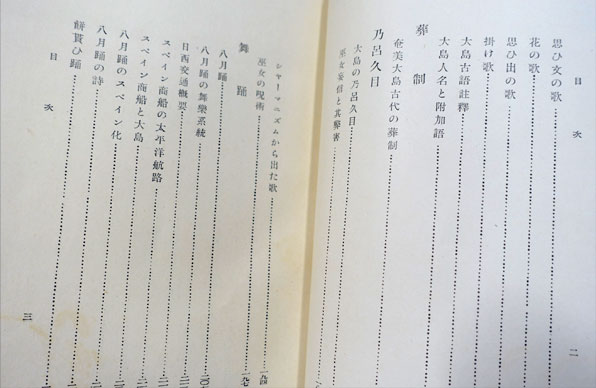 目次
思ひ文の歌
花の歌
思ひ出の歌
掛け歌
大島古語註釋
大島人名と附加語
葬制
奄美大島古代の葬制
乃呂久目
大島の乃呂久目
巫女妄信と其弊害
二
シャーマニズムから出た歌
巫女の呪術
舞踊
八月踊
八月踊の舞樂系統
日西交通概要
スペイン商船の太平洋航路
スペイン商船と大島
八月踊のスペイン化
八月踊の詩
餅貰ひ踊
目次
三